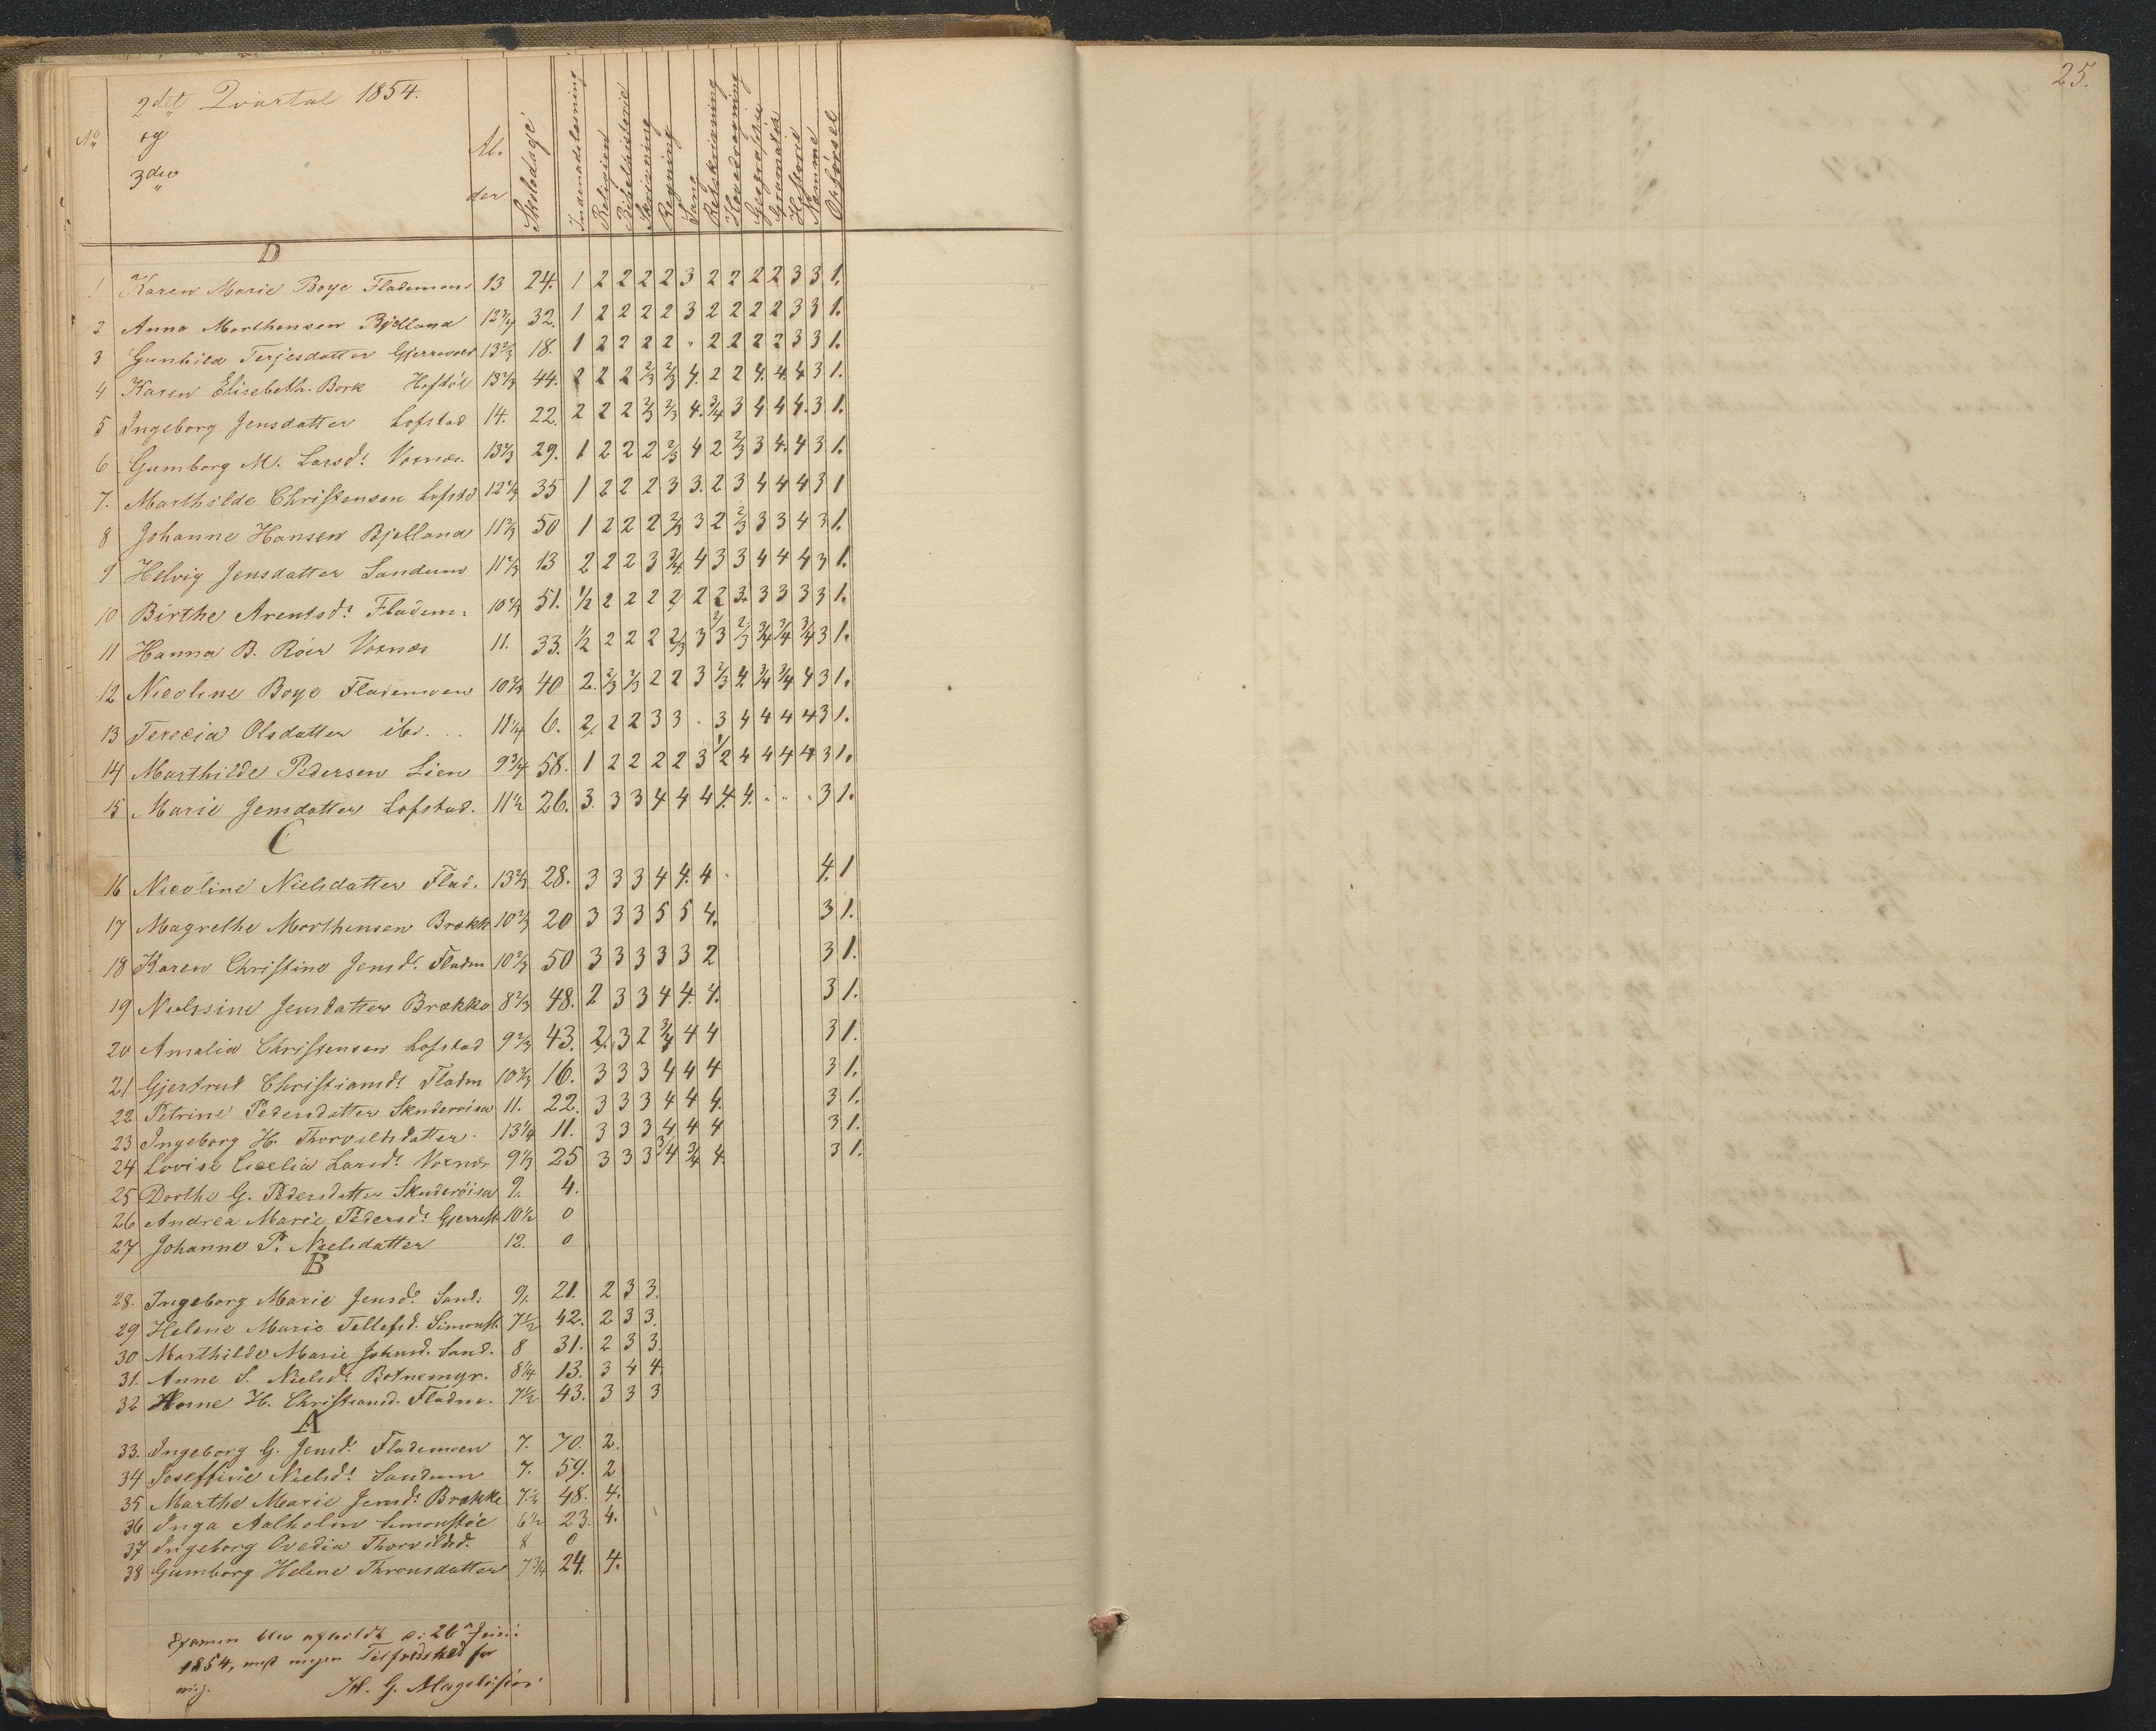 25.
2det Qvartal 1854.
og
3die
No Al-der Skoledage Indenadslæsning Religion Bibelhistorie Skrivning Regning Sang Retskrivning Hovedregning Geografhie Gramatik Historie Nemme Opførsel
D
1 Karen Marie Boye Flademoen 13 24. 1 2 2 2 2 3 2 2 2 2 3 3 1.
2 Anna Morthensen Bjelland 12 3/4 32. 1 2 2 2 2 3 2 2 2 2 3 3 1.
3 Gunhild Terjesdatter 13 2/3 18. 1 2 2 2 2 " 2 2 2 2 3 3 1.
4 Karen Elisebeth. Bork 44. 2 2 2 2/3 2/3 4. 2 2 4. 4. 4 3 1.
5 Ingeborg Jensdatter Lofstad 14. 22. 2 2 2 2/3 2/3 4. 3/4 3 4 4 4. 3 1.
6 Gumborg M. Larsdt Voxnæs. 29. 1 2 2 2 2/3 4 2 2/3 3 4. 4 3 1.
7. Marthilde Christensen Lofstd 35 1 2 2 2 3 3. 2 3 4 4 4 3 1
8 Johanne Hansen Bjelland 11 2/3 50 1 2 2 2 2/3 3 2 2/3 3 3 4 3 1.
9 Helvig Jensdatter Sandum 11 2/3 13 2 2 2 3 3/4 4 3 3 4 4 4 3 1.
10 Birthe Arentsdt Fladem. 10 2/3 51. 1/2 2 2 2 2 2 2 3. 3 3 3 3 1.
11 Hanna B. Röer Voxnæs 11. 33. 1/2 2 2 2 2/3 3 2/3 2/3 3/4 3/4 3/4 3 1.
12 Nicoline Boye Flademoen 10 2/3 40 2. 2/3 2/3 2 2 3 2/3 4. 3/4 3/4 4 3 1.
13 Terecia Olsdatter ibd. . . 11 1/4 6. 2. 2 2 3 3 . 3 4 4 4 4 3 1.
14 Marthilde Pedersen Lien 9 3/4 58. 1 2 2 2 2 3 1/2 4 4 4 4 3 1.
15 Marie Jensdatter Lofstad. 11 1/2 26. 3. 3 3 4 4 4 4. 4. " " " 3 1.
C
16 Nicoline Nielsdatter Flad. 13 2/3 28. 3 3 3 4 4. 4 . 4. 1
17 Magrethe Morthensen Brækk 10 2/3 20 3 3 3 5 5 4. 3 1.
18 Karen Christine Jensdt. Fladm 10 2/3 50 3 3 3 3 3 2 3 1.
19 Nielssine Jensdatter Brække 8 2/3 48. 2 3 3 4 4. 4. 3 1.
20 Amalia Christensen Lofstad 9 2/3 43. 2. 3 2 3/4 4 4 3 1.
21 Gjertrud Christiansdt Fladm 10 2/3 16. 3 3 3 4 4 4 3 1.
22 Petrine Pedersdatter Skuderöisa 11. 22. 3 3 3 4 4 4. 3 1.
23 Ingeborg H. Thorvildsdatter. 13 1/4 11. 3 3 3 4 4 4 3 1.
24 Lovise Cecelia Larsdt Voxnæs 9 1/3 25 3 3 3 3/4 3/4 4. 3 1.
25 Dorthe G. Pedersdatter Skuderöisa 9. 4.
26 Andrea Marie Pedersdt 10 1/2 0
27 Johanne P. Nielsdatter 12. 0
B
28. Ingeborg Marie Jensdt. Sand. 9. 21. 2 3 3.
29 Helene Marie Tellefsd. Simonst. 7 1/2 42. 2 3 3.
30 Marthilde Marie Johnsd. Sand. 8 31. 2 3 3.
31. Anne S. Nielsdt Botnemyr. 8 1/4 13. 3 4 4.
32 Hanne H. Christiansd. Fladm. 7 1/2 43. 3 3 3
A
33. Ingeborg G. Jensdt. Flademoen 7. 70. 2.
34 Joseffine Nielsdt Sandum 7. 59. 2
35 Marthe Marie Jensdt Brække 7 1/2 48. 4.
36 Inga Aalholm Simonstöe 6 1/2 23. 4.
37 Ingeborg Ovedia Thorvildsd. 8 0
38 Gumborg Helene Thronsdatter 7 3/4 24. 4.
Examen blev afholdt d: 26de Juni
1854, med megen Tilfredshed for
mig.